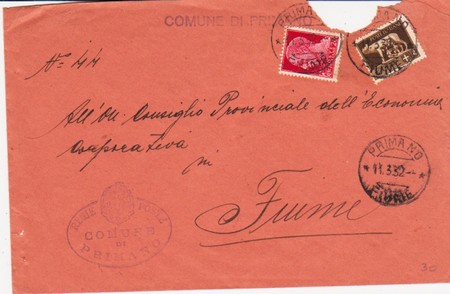 COMUNE DI PRIMANO
PRIMANO
FIUME
N° 44
All'On. Consiglio Provinciale dell'Economia
Corporativa
in
Fiume
PRIMANO
11.3.32
FIUME
REGIE POSTE
COMUNE
DI
PRIMANO
30